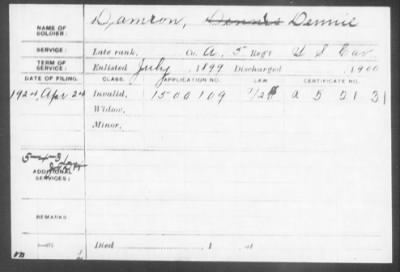 NAME OF SOLDIER: Damron, Dennis Dennie
SERVICE: Late rank, Co. A, 5 Reg't U S Cav
TERM OF SERVICE: Enlisted July, 1899 Discharged 1900
DATE OF FILING. CLASS. APPLICATION NO. LAW. CERTIFICATE NO.
1924, Apr 24 Invalid, 1500109 a 5 5 1 3 1
Widow,
Minor,
ADDITIONAL SERVICES:
REMARKS:
Died , 1 , at